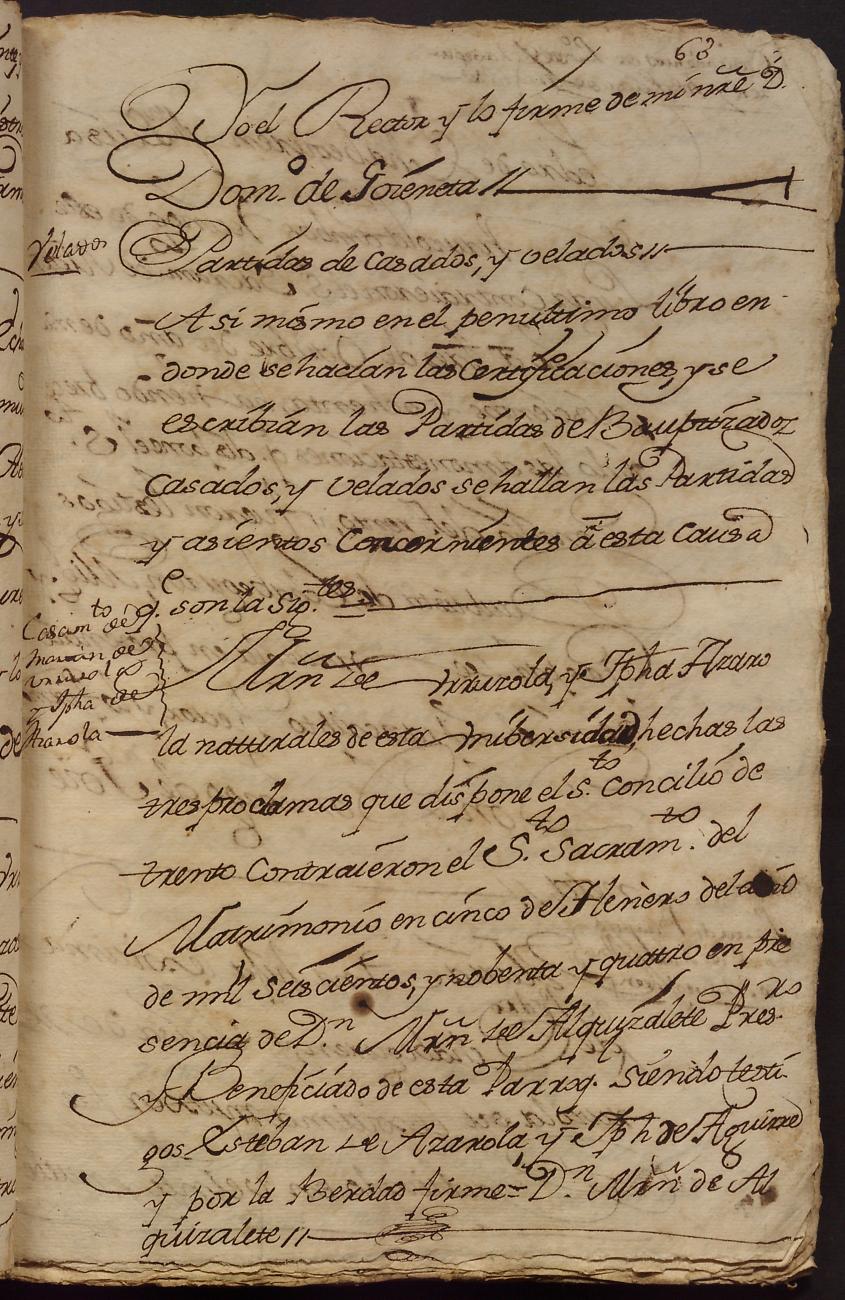 68
Yo el Rector y lo firme de mi nre D.
Domº. de Goieneta //
Velados
Partidas de Casados, y velados //
Asi mismo en el penultimo libro en
donde se hacian las Certificaciones, y se
escribian las Partidas de Bauptizados
Casados, y velados se hallan las Partidas
y asientos Concernientes â esta Causa
q.e son la Sig.tes
Casamto de
Martin de
Urruzola
y Jpha de
Azarola
Mrn de Urruzola, y Jpha Azaro
la naturales de esta Unibersidad, hechas las
tres proclamas que dispone el S.to Concilio de
trento Contraieron el S.to Sacram.to del
Matrimonio en cinco de Henero del año
de mil Seiscientos, y nobenta y quatro en pre
sencia de D.n Mrn de Alquizalete Pres.ro
y Beneficiado de esta Parroq. Siendo testi
gos Esteban de Azarola, y Jph de Aguirre
y por la Berdad firme = D.n Mrn de Al
quizalete //